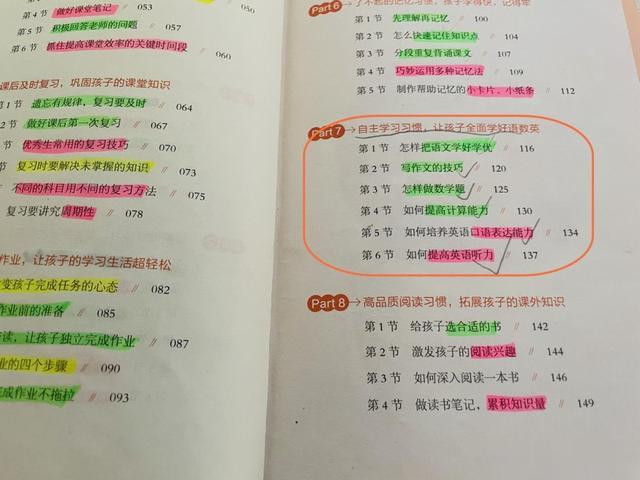 第4节 做好课堂笔记 // 053
第5节 积极回答老师的问题 // 056
第6节 抓住提高课堂效率的关键时间段 // 060
课后及时复习，巩固孩子的课堂知识
第1节 遗忘有规律，复习要及时 // 064
2节 做好课后第一次复习 // 067
节 优秀生常用的复习技巧 // 070
节 复习时要解决未掌握的知识 // 073
不同的科目用不同的复习方法 // 075
复习要讲究周期性 // 078
作业，让孩子的学习生活超轻松
变孩子完成任务的心态 // 082
作业前的准备 // 085
读，让孩子独立完成作业 // 087
业的四个步骤 // 090
完成作业不拖拉 // 093
Part 6 了不起的记忆习惯，孩子学得快、记得牢
第1节 先理解再记忆 // 100
第2节 怎么快速记住知识点 // 104
第3节 分段重复背诵课文 // 107
第4节 巧妙运用多种记忆法 // 109
第5节 制作帮助记忆的小卡片、小纸条 // 112
Part 7 自主学习习惯，让孩子全面学好语数英
第1节 怎样把语文学好学优 // 116
第2节 写作文的技巧 // 120
第3节 怎样做数学题 // 125
第4节 如何提高计算能力 // 130
第5节 如何培养英语口语表达能力 // 134
第6节 如何提高英语听力 // 137
Part 8 高品质阅读习惯，拓展孩子的课外知识
第1节 给孩子选合适的书 // 142
第2节 激发孩子的阅读兴趣 // 144
第3节 如何深入阅读一本书 // 146
第4节 做读书笔记，累积知识量 // 149